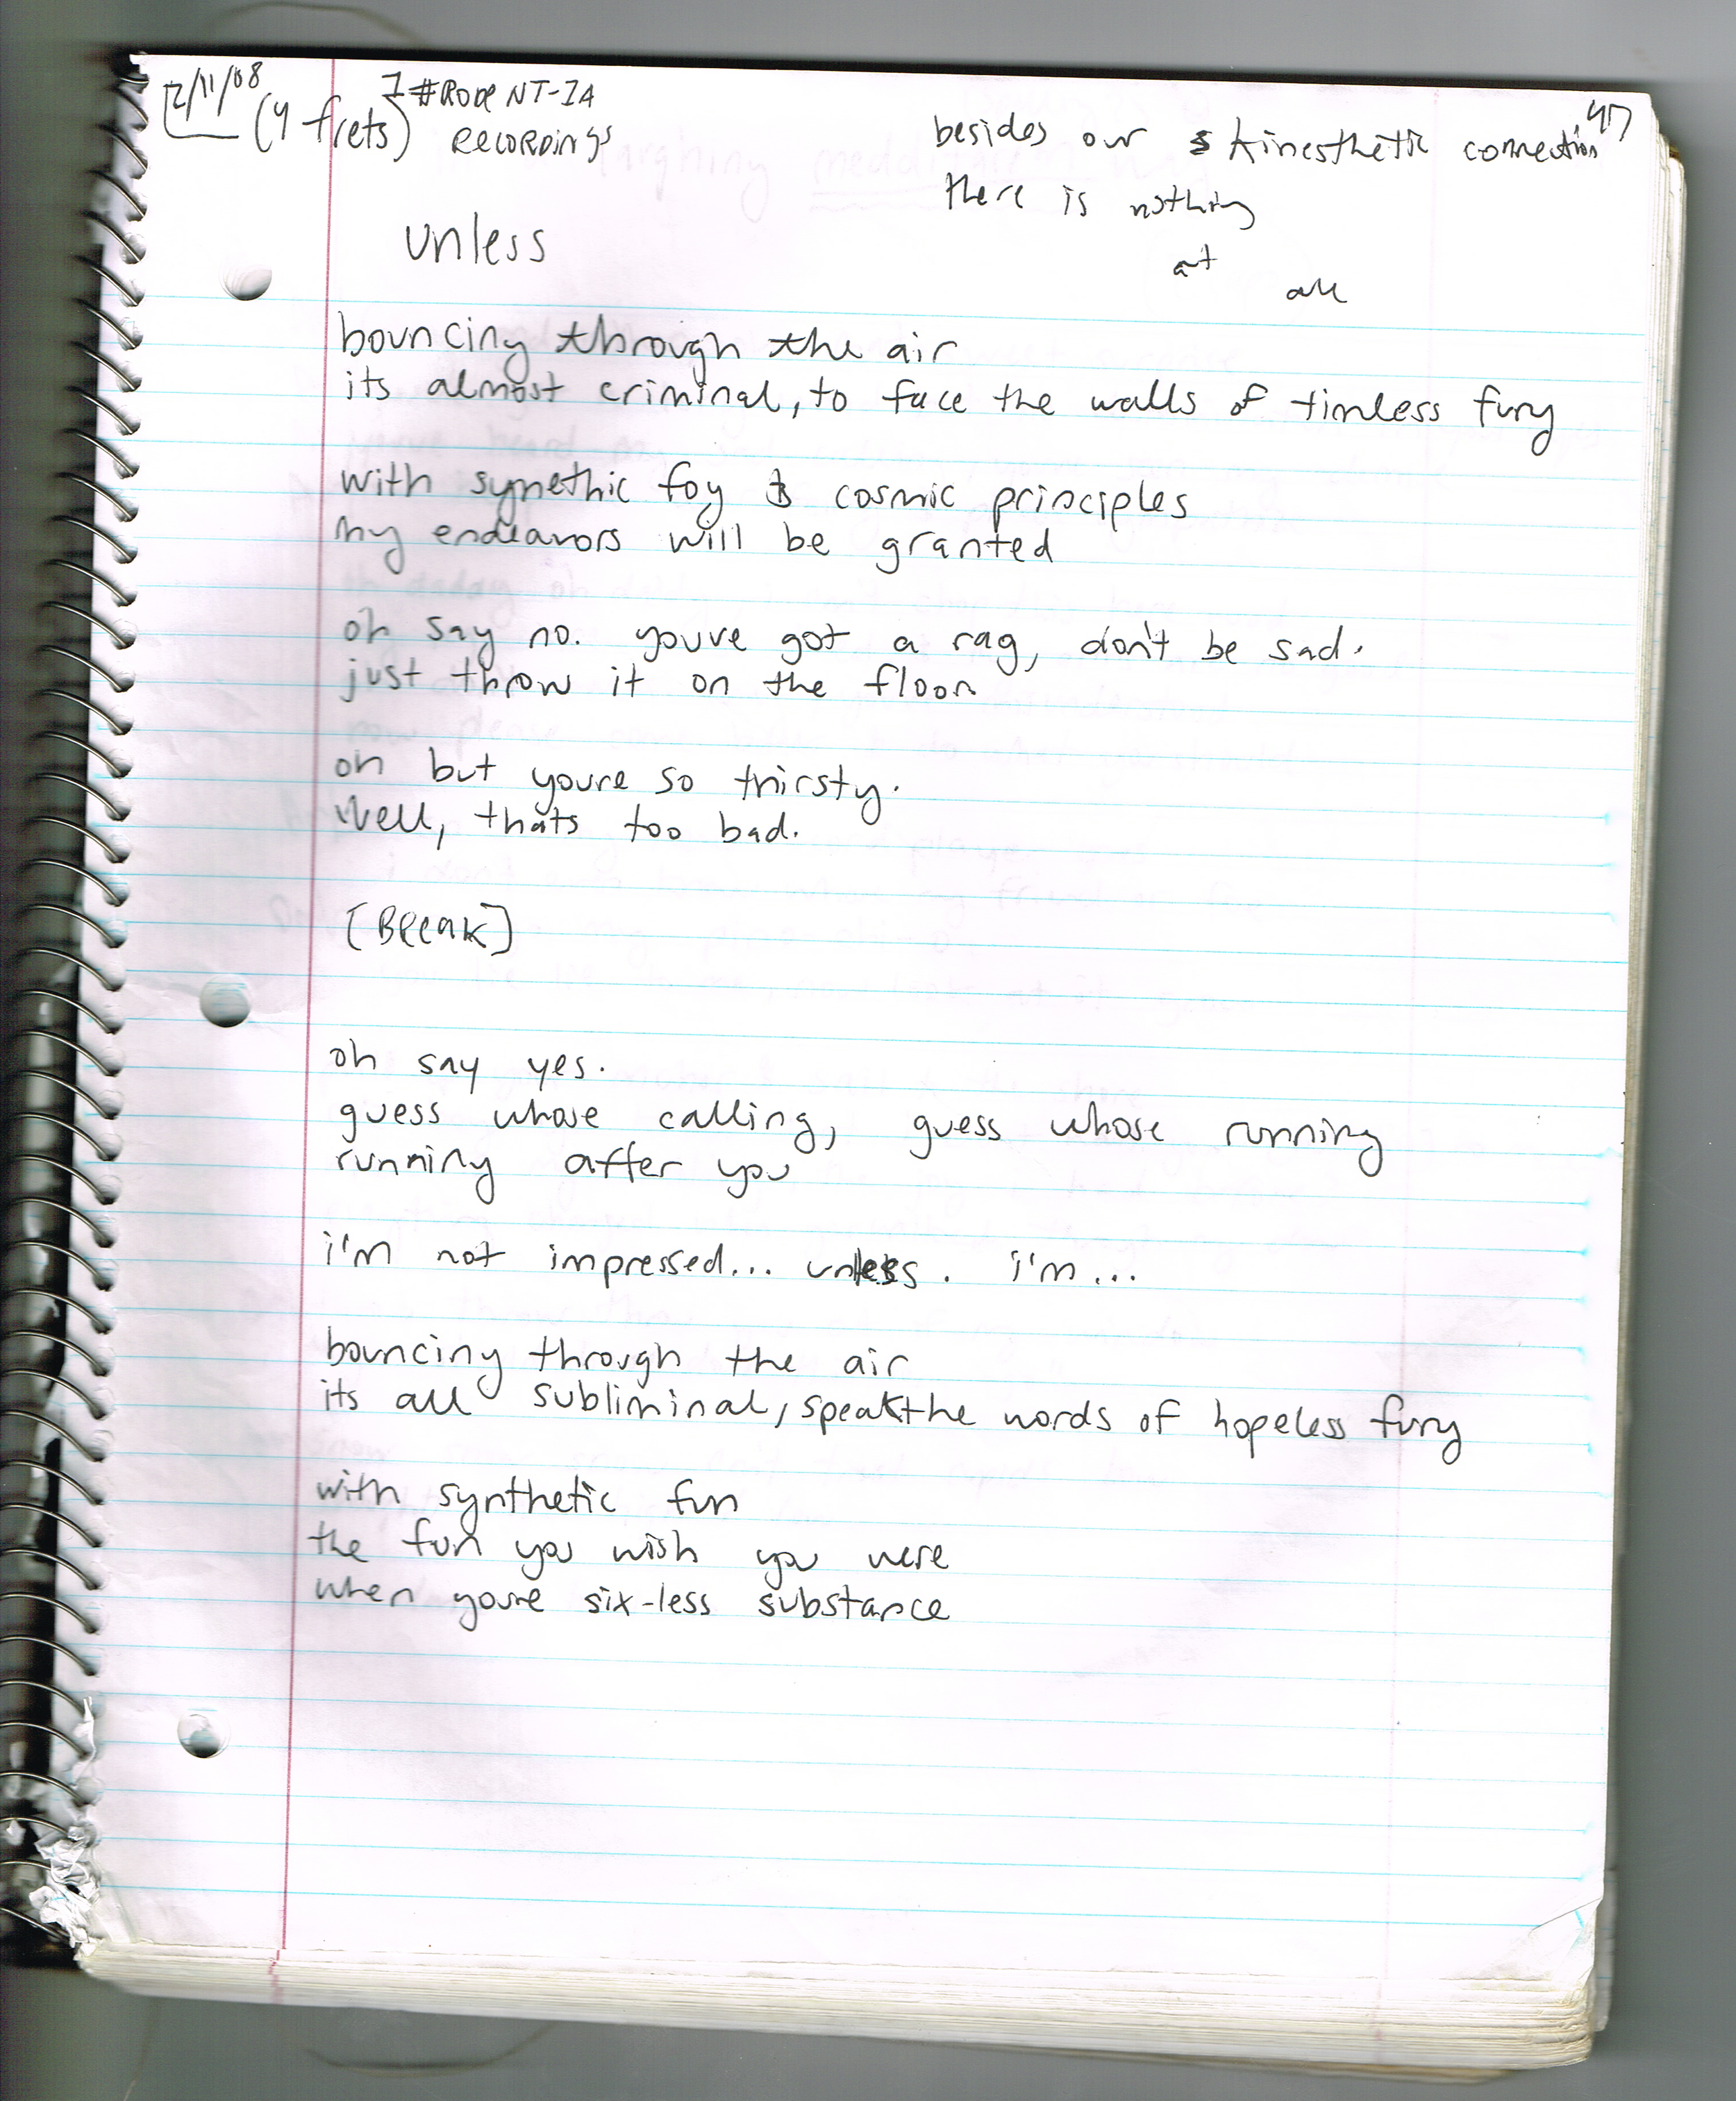 12/11/08
(4 frets)
1 # Rode NT-1A
Recordings
47
besides our kinesthetic connection
there is nothing
at
all
unless
bouncing through the air
its almost criminal, to face the walls of timless fury
with synethic foy & cosmic principles
my endeavors will be granted
oh say no. youve got a rag, don't be sad.
just throw it on the floor
oh but youre so thirsty.
Well, thats too bad.
[Break]
oh say yes.
guess whose calling, guess whose running
running after you
i'm not impressed... unless. i'm...
bouncing through the air
its all subliminal, speak the words of hopeless fury
with synthetic fun
the fun you wish you were
when youre six-less substance